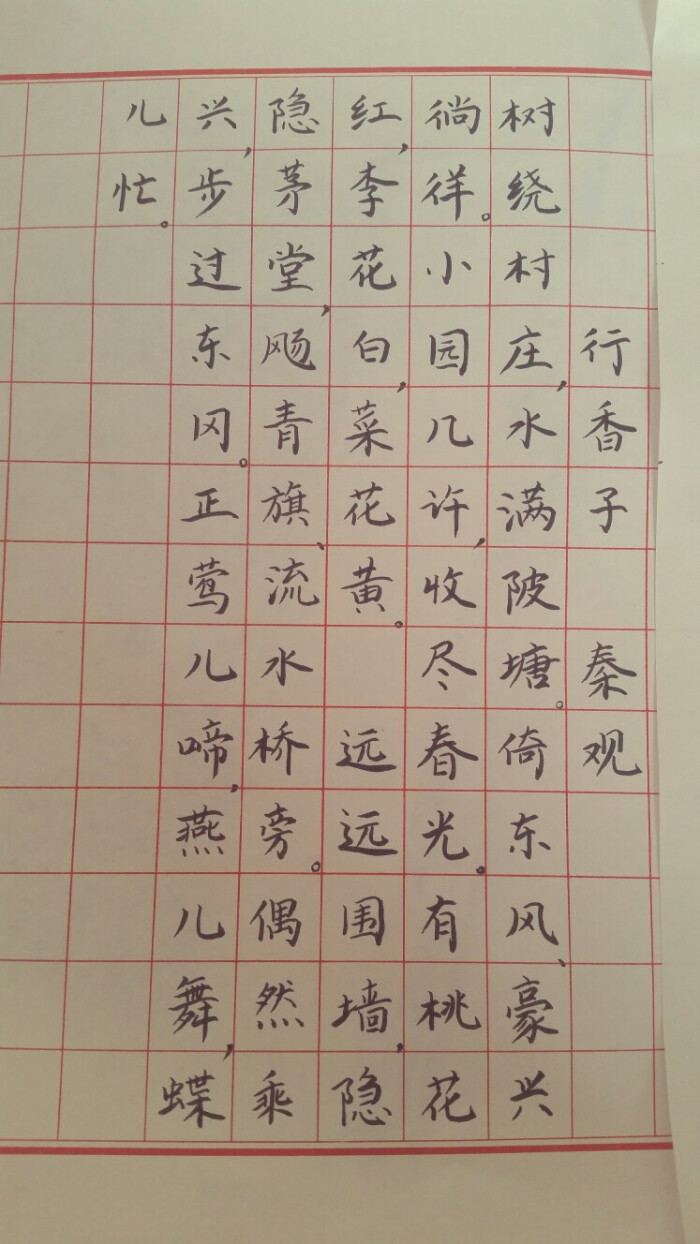 行香子 秦观
树绕村庄,水满陂塘。倚东风、豪兴
徜徉。小园几许,收尽春光。有桃花
红,李花白,菜花黄。 远远围墙,隐
隐茅堂,飏青旗、流水桥旁。偶然乘
兴,步过东冈。正莺儿啼,燕儿舞,蝶
儿忙。